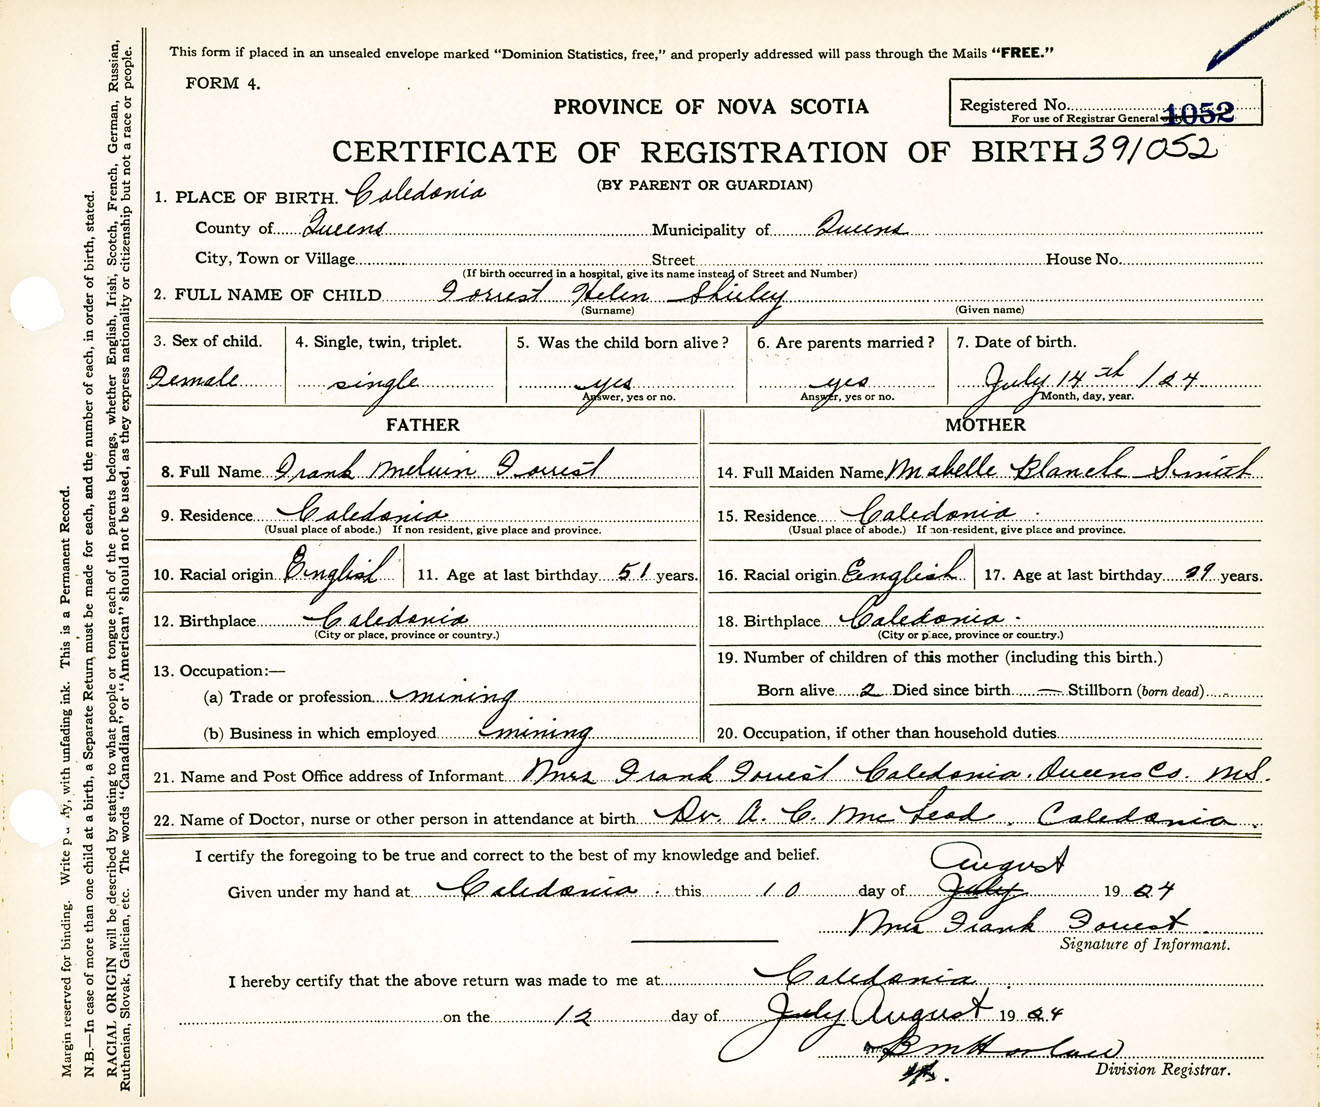 This form if placed in an unsealed envelope marked "Dominion Statistics, free," and properly addressed will pass through the Mails "FREE."
FORM 4.
PROVINCE OF NOVA SCOTIA
Registered No. 1052
For use of Registrar General
CERTIFICATE OF REGISTRATION OF BIRTH 391052
(BY PARENT OR GUARDIAN)
1. PLACE OF BIRTH. Caledonia
County of Queens Municipality of Queens
City, Town or Village Street House No.
(If birth occurred in a hospital, give its name instead of Street and Number)
2. FULL NAME OF CHILD Forrest Helen Shirley
(Surname) (Given name)
3. Sex of child. 4. Single, twin, triplet. 5. Was the child born alive? 6. Are parents married? 7. Date of birth.
Female single yes yes July 14th 1924
Answer, yes or no. Answer, yes or no. Month, day, year.
FATHER MOTHER
8. Full Name Frank Melvin Forrest 14. Full Maiden Name Mabelle Blanche Smith
9. Residence Caledonia 15. Residence Caledonia
(Usual place of abode.) If non resident, give place and province. (Usual place of abode.) If non-resident, give place and province.
10. Racial origin English 11. Age at last birthday 51 years. 16. Racial origin English 17. Age at last birthday years.
12. Birthplace Caledonia 18. Birthplace Caledonia
(City or place, province or country.) (City or place, province or country.)
13. Occupation:— 19. Number of children of this mother (including this birth.)
(a) Trade or profession mining Born alive 2 Died since birth — Stillborn (born dead)
(b) Business in which employed mining 20. Occupation, if other than household duties
21. Name and Post Office address of Informant Mrs Frank Forrest Caledonia. Queens Co. N.S.
22. Name of Doctor, nurse or other person in attendance at birth Dr. A. C. McLeod. Caledonia.
I certify the foregoing to be true and correct to the best of my knowledge and belief.
August
Given under my hand at Caledonia. this 10 day of July 1924
Mrs Frank Forrest
Signature of Informant.
I hereby certify that the above return was made to me at Caledonia
on the 12 day of July August 1924
Division Registrar.
Margin reserved for binding. Write plainly, with unfading ink. This is a Permanent Record.
N.B.—In case of more than one child at a birth, a Separate Return must be made for each, and the number of each, in order of birth, stated.
RACIAL ORIGIN will be described by stating to what people or tongue each of the parents belongs, whether English, Irish, Scotch, French, German, Russian,
Ruthenian, Slovak, Galician, etc. The words "Canadian" or "American" should not be used, as they express nationality or citizenship but not a race or people.